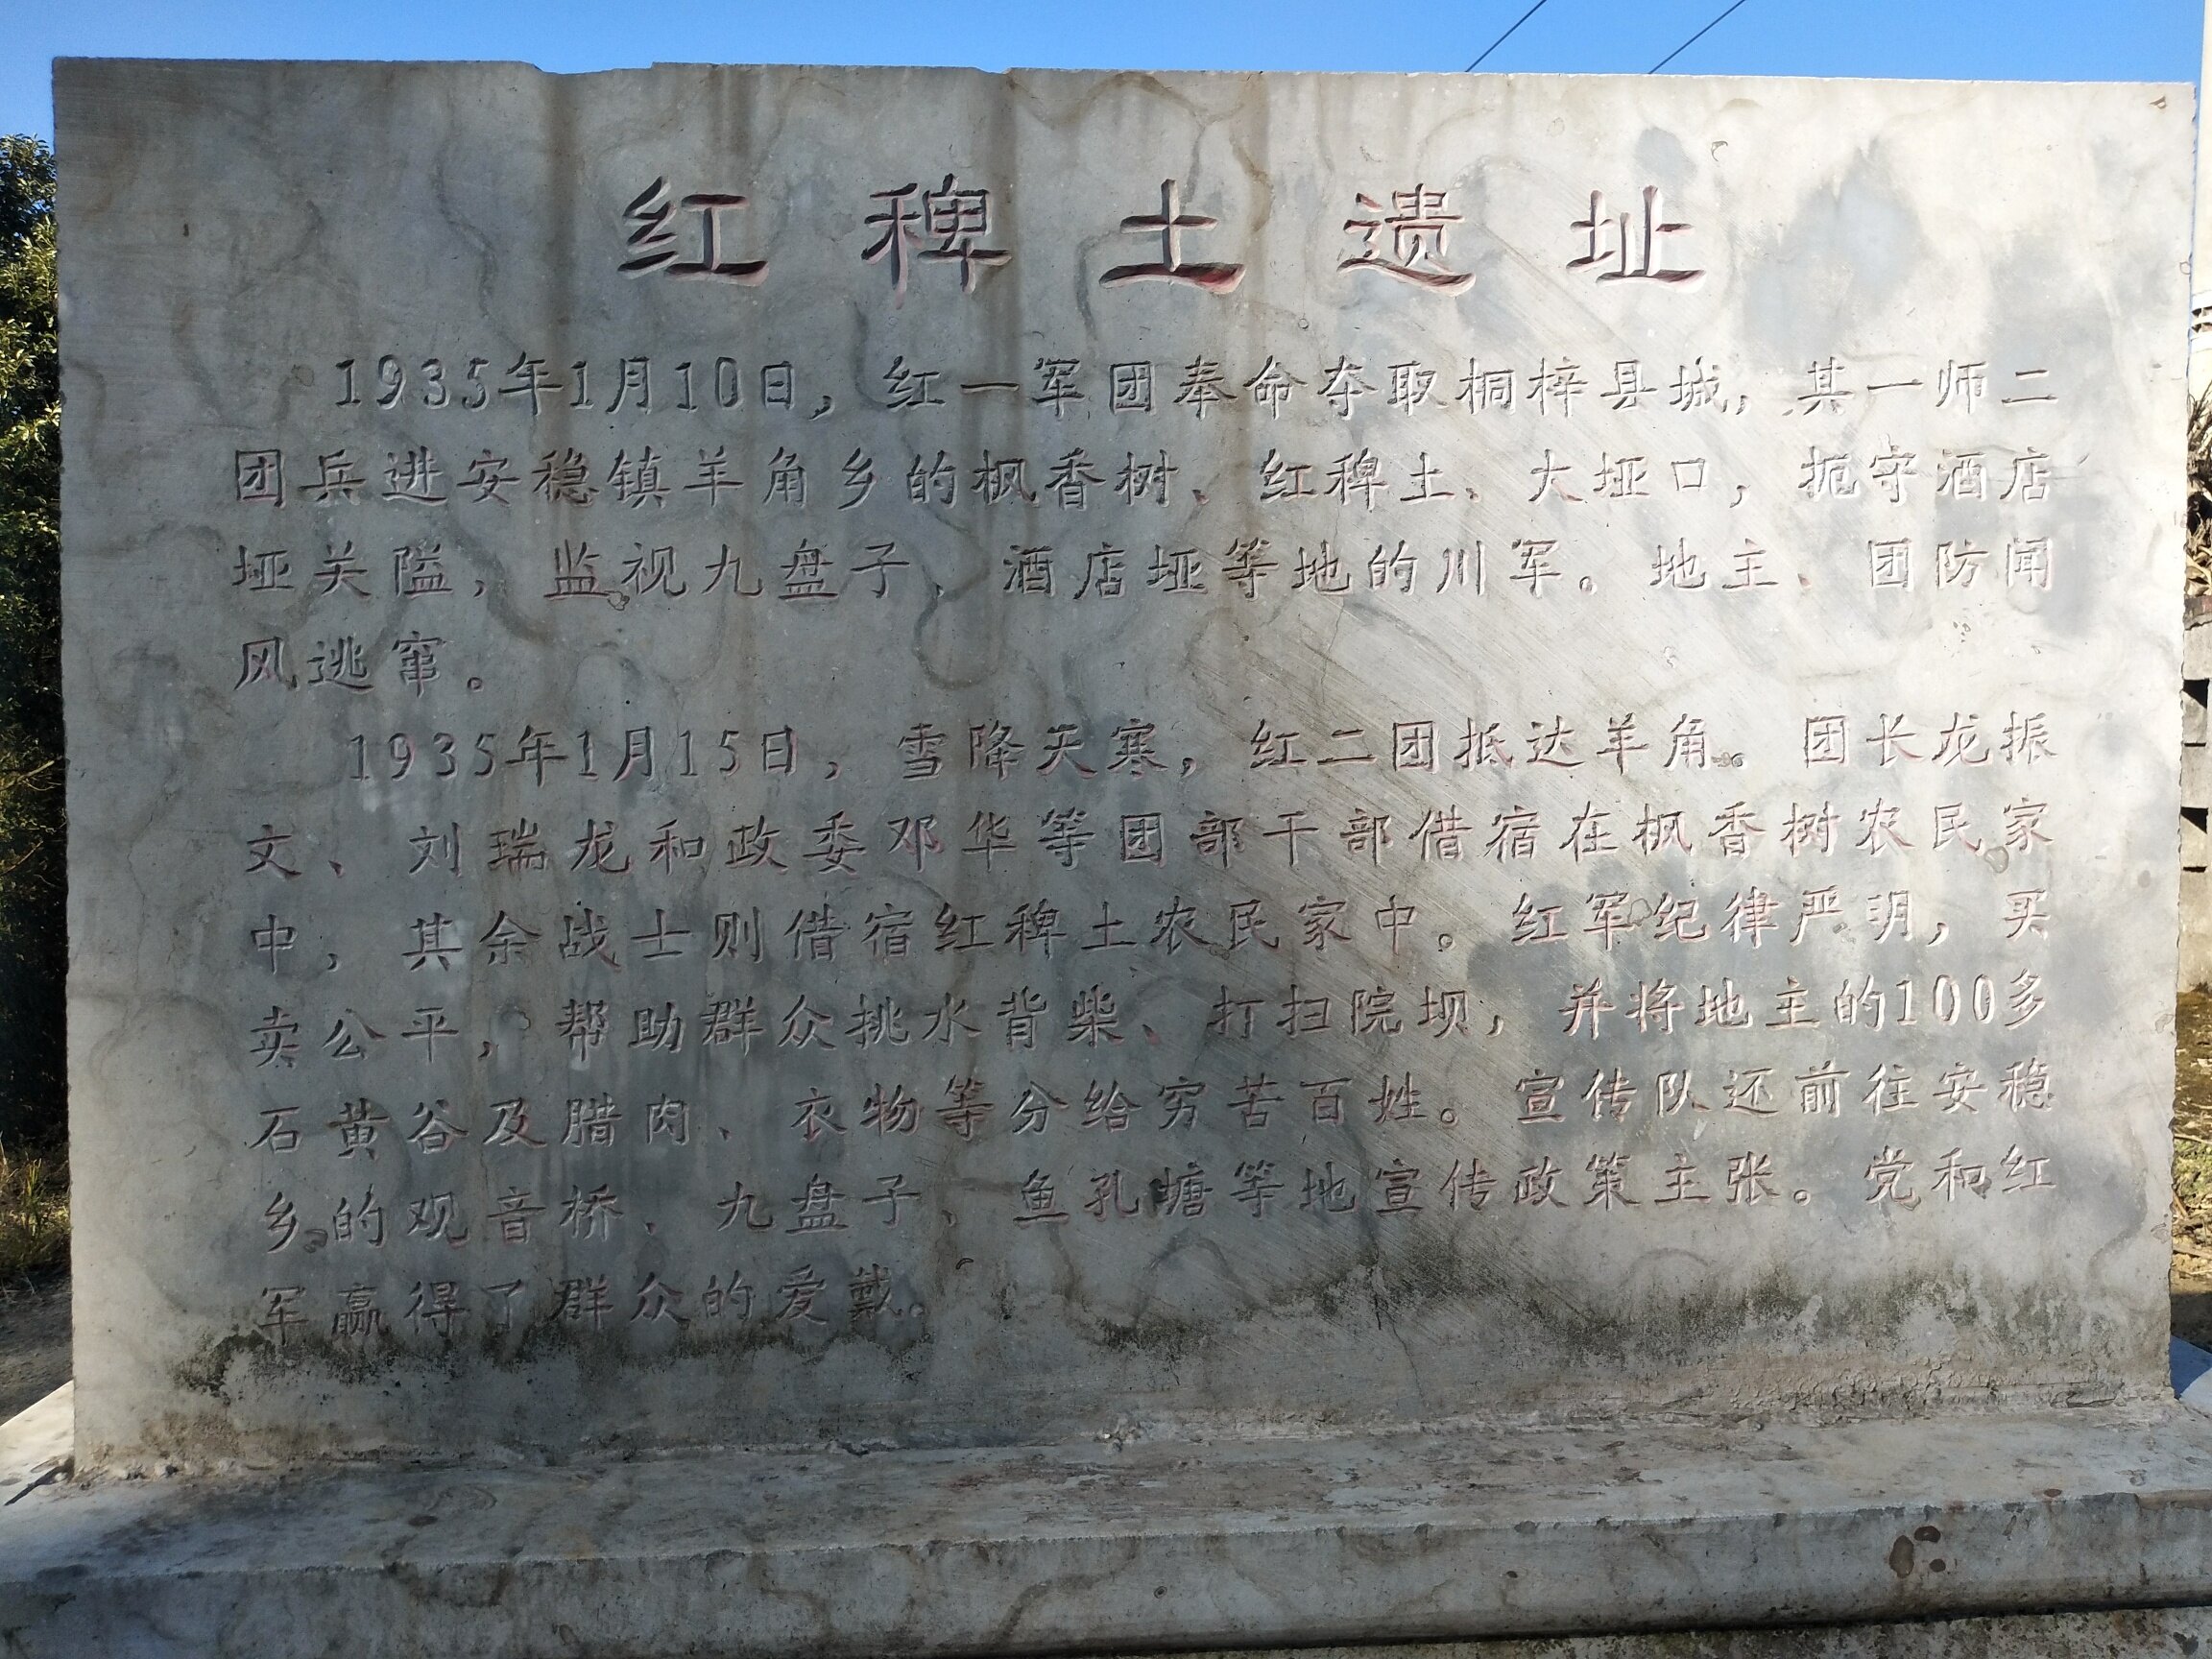 红稗土遗址
1935年1月10日，红一军团奉命夺取桐梓县城，其一师二
团兵进安稳镇羊角乡的枫香树、红稗土、大垭口，扼守酒店
垭关隘，监视九盘子、酒店垭等地的川军。地主、团防闻
风逃窜。
1935年1月15日，雪降天寒，红二团抵达羊角。团长龙振
文、刘瑞龙和政委邓华等团部干部借宿在枫香树农民家
中，其余战士则借宿红稗土农民家中。红军纪律严明，买
卖公平，帮助群众挑水背柴、打扫院坝，并将地主的100多
石黄谷及腊肉、衣物等分给穷苦百姓。宣传队还前往安稳
乡的观音桥、九盘子、鱼孔塘等地宣传政策主张。党和红
军赢得了群众的爱戴。